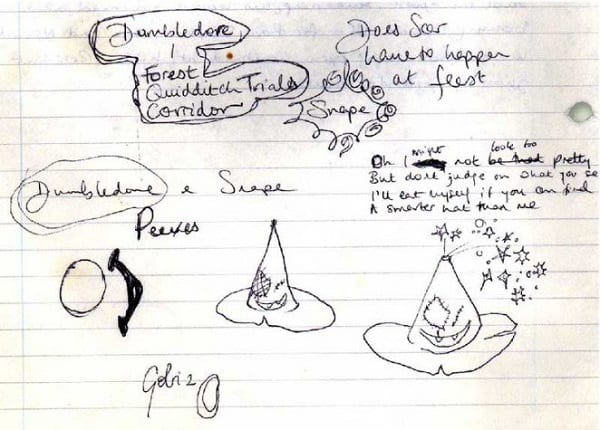 Dumbledore
Forest
Quidditch Trials
Corridor
Does Scar
have to happen
at feast
Snape
Oh I might not look too pretty
But don't judge on what you see
I'll eat myself if you can find
A smarter hat than me
Dumbledore & Snape
Peeves